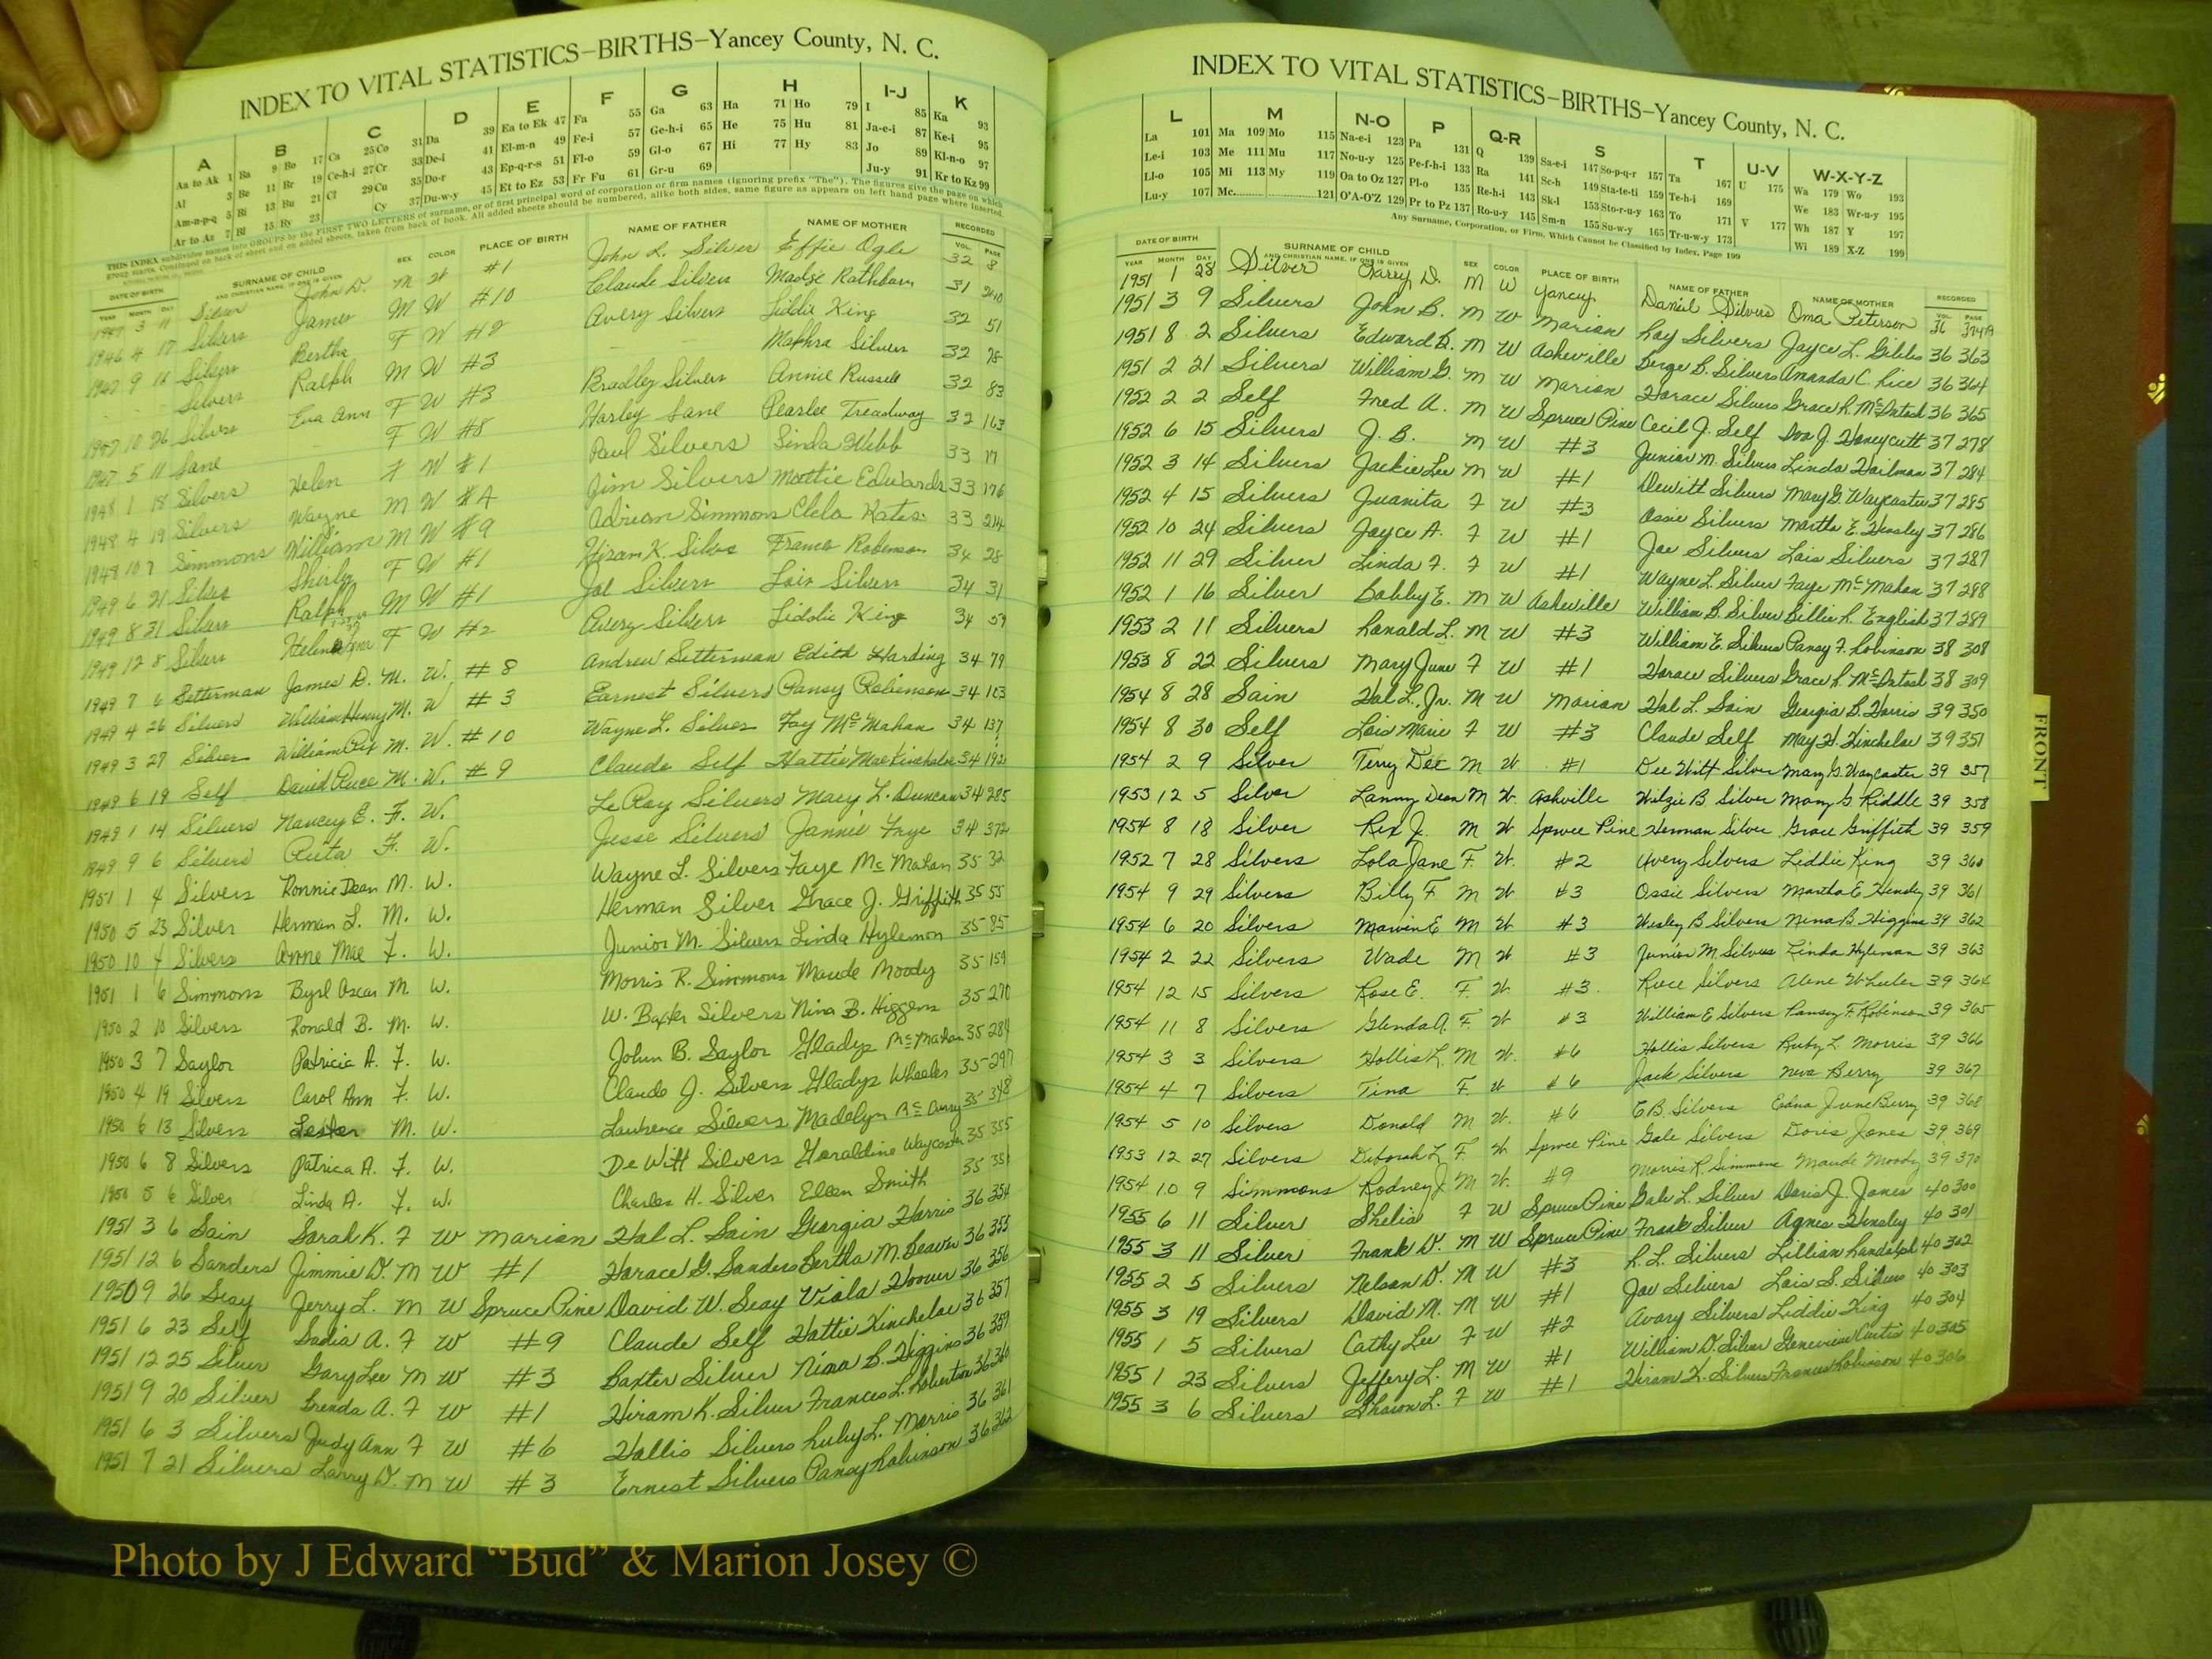 INDEX TO VITAL STATISTICS–BIRTHS–Yancey County, N. C.
A B C D E F G H I-J K
Aa to Ak 1 Ba 9 Bo 17 Ca 25 Co 31 Da 39 Ea to Ek 47 Fa 55 Ga 63 Ha 71 Ho 79 I 85 Ka 93
Al 3 Be 11 Br 19 Ce-h-i 27 Cr 33 De-i 41 El-m-n 49 Fe-i 57 Ge-h-i 65 He 75 Hu 81 Ja-e-i 87 Ke-i 95
Am-n-p-q 5 Bi 13 Bu 21 Cl 29 Cu 35 Do-r 43 Ep-q-r-s 51 Fl-o 59 Gl-o 67 Hi 77 Hy 83 Jo 89 Kl-n-o 97
Ar to Az 7 Bl 15 By 23 Cy 37 Du-w-y 45 Et to Ez 53 Fr Fu 61 Gr-u 69 Ju-y 91 Kr to Kz 99
THIS INDEX subdivides names into GROUPS by the FIRST TWO LETTERS of surname, or of first principal word of corporation or firm names (ignoring prefix "The"). The figures give the page on which
group starts. Continued on back of sheet and on added sheets, taken from back of book. All added sheets should be numbered, alike both sides, same figure as appears on left hand page where inserted.
DATE OF BIRTH SURNAME OF CHILD SEX COLOR PLACE OF BIRTH NAME OF FATHER NAME OF MOTHER RECORDED
YEAR MONTH DAY AND CHRISTIAN NAME, IF ONE IS GIVEN VOL. PAGE
1947 3 11 Silver John D. M W #1 John L. Silver Effie Ogle 32 8
1946 4 17 Silvers James M W #10 Claude Silvers Madge Rathburn 31
1947 9 Silvers Bertha F W #2 Avery Silvers Liddie King 32 51
Silvers Ralph M W #3 Silvers 32 78
1947 10 26 Silvers Eva Ann F W #3 Bradley Silvers Annie Russell 32 83
1947 5 11 Lane F W #8 Harley Lane Pearlee Treadway 32 163
1948 1 18 Silvers Helen F W #1 Paul Silvers Linda Webb 33 17
1948 4 19 Silvers Wayne M W #4 Jim Silvers Mattie Edwards 33 176
1948 10 7 Simmons William M W #9 Adrian Simmons 33 214
1949 6 21 Silver Shirley F W #1 Hiram K. Silver Frances Robinson 34 28
1949 8 31 Silvers Ralph M W #1 Joe Silvers Lois Silvers 34 31
1949 12 8 Silvers Helen F W #2 Avery Silvers Liddie King 34 59
1949 7 6 Setterman James D. M. W. #8 Andrew Setterman Edith Harding 34 79
1949 4 26 Silvers William Henry M. W #3 Earnest Silvers Pansy Robinson 34 103
1949 3 27 Silver William M. W. #10 Wayne L. Silver Fay McMahan 34 137
1949 6 19 Self David M. W. #9 Claude Self Hattie Mae Kinchelor 34 192
1949 1 14 Silvers Nancey E. F. W. LeRoy Silvers Macy L. Duncan 34 285
1949 9 6 Silvers Reta F. W. Jesse Silvers Jannie Frye 34 372
1951 1 4 Silvers Ronnie Dean M. W. Wayne L. Silvers Faye McMahan 35 32
1950 5 23 Silver Herman L. M. W. Herman Silver Grace J. Griffith 35 55
1950 10 4 Silvers Anne Mae F. W. Junior M. Silvers Linda Hylemon 35 85
1951 1 6 Simmons Byrl Oscar M. W. Morris R. Simmons Maude Moody 35 159
1950 2 10 Silvers Ronald B. M. W. W. Baxter Silvers Nina B. Higgins 35 270
1950 3 7 Saylor Patricia A. F. W. John B. Saylor Gladys McMahan 35 284
1950 4 19 Silvers Carol Ann F. W. Claude J. Silvers Gladys Wheeler 35 297
1950 6 13 Silvers Lester M. W. Lawrence Silvers Madelyn McCurry 35 348
1950 6 8 Silvers Patrica A. F. W. DeWitt Silvers Geraldine Waycaster 35 355
1950 5 6 Silver Linda A. F. W. Charles H. Silver Ellen Smith 35
1951 3 6 Sain Sarah K. F W Marion Hal L. Sain Georgia Harris 36 354
1951 12 6 Sanders Jimmie D. M W #1 Horace G. Sanders Bertha M. Beaver 36 355
1950 9 26 Seay Jerry L. M W Spruce Pine David W. Seay Viola Hoover 36 356
1951 6 23 Self Sadia A. F W #9 Claude Self Hattie Kinchelor 36 357
1951 12 25 Silver Gary Lee M W #3 Baxter Silver Nina B. Higgins 36 359
1951 9 20 Silver Brenda A. F W #1 Hiram K. Silver Frances L. Robertson 36 360
1951 6 3 Silvers Judy Ann F W #6 Hollis Silvers Ruby L. Morris 36 361
1951 7 21 Silvers Larry D. M W #3 Ernest Silvers Pansy Robinson 36 362
INDEX TO VITAL STATISTICS–BIRTHS–Yancey County, N. C.
L M N-O P Q-R S T U-V W-X-Y-Z
La 101 Ma 109 Mo 115 Na-e-i 123 Pa 131 Q 139 Sa-e-i 147 So-p-q-r 157 Ta 167 U 175 Wa 179 Wo 193
Le-i 103 Me 111 Mu 117 No-u-y 125 Pe-f-h-i 133 Ra 141 Sc-h 149 Sta-te-ti 159 Te-h-i 169 We 183 Wr-u-y 195
Ll-o 105 Mi 113 My 119 Oa to Oz 127 Pl-o 135 Re-h-i 143 Sk-l 153 Sto-r-u-y 163 To 171 V 177 Wh 187 Y 197
Lu-y 107 Mc 121 O'A-O'Z 129 Pr to Pz 137 Ro-u-y 145 Sm-n 155 Su-w-y 165 Tr-u-w-y 173 Wi 189 X-Z 199
Any Surname, Corporation, or Firm, Which Cannot be Classified by Index, Page 199
DATE OF BIRTH SURNAME OF CHILD SEX COLOR PLACE OF BIRTH NAME OF FATHER NAME OF MOTHER RECORDED
YEAR MONTH DAY AND CHRISTIAN NAME, IF ONE IS GIVEN VOL. PAGE
1951 1 28 Silver Larry D. M W Yancey Daniel Silvers Oma Peterson 36
1951 3 9 Silvers John B. M W Marion Roy Silvers Jayce L. Gibbs 36 363
1951 8 2 Silvers Edward B. M W Asheville Berge B. Silvers Amanda C. Rice 36 364
1951 2 21 Silvers William G. M W Marion Horace Silvers Grace R. McIntosh 36 365
1952 2 2 Self Fred A. M W Spruce Pine Cecil J. Self Iva J. Honeycutt 37 278
1952 6 15 Silvers J. B. M W #3 Junior M. Silvers Linda Hailman 37 284
1952 3 14 Silvers Jackie Lee M W #1 Dewitt Silvers Mary G. Waycaster 37 285
1952 4 15 Silvers Juanita F W #3 Ossie Silvers Martha E. Hensley 37 286
1952 10 24 Silvers Jayce A. F W #1 Joe Silvers Lois Silvers 37 287
1952 11 29 Silver Linda F. F W #1 Wayne L. Silver Faye McMahan 37 288
1952 1 16 Silver Bobby E. M W Asheville William B. Silver Billie R. English 37 289
1953 2 11 Silvers Ronald L. M W #3 William E. Silvers Pansy F. Robinson 38 308
1953 8 22 Silvers Mary June F W #1 Horace Silvers Grace R. McIntosh 38 309
1954 8 28 Sain Hal L., Jr. M W Marion Hal L. Sain Georgia B. Harris 39 350
1954 8 30 Self Lois Marie F W #3 Claude Self May H. Kinchelor 39 351
1954 2 9 Silver Terry Dee M W #1 Dee Witt Silver Mary G. Waycaster 39 357
1953 12 5 Silver Lanny Dean M W Ashville Wilzie B Silver Mary G Riddle 39 358
1954 8 18 Silver Rex J. M W Spruce Pine Herman Silver Grace Griffith 39 359
1952 7 28 Silvers Lola Jane F. W. #2 Avery Silvers Liddie King 39 360
1954 9 29 Silvers Billy F M W #3 Ossie Silvers Martha E Hensley 39 361
1954 6 20 Silvers Marvin E M W #3 Wesley B Silvers Nina B. Higgins 39 362
1954 2 22 Silvers Wade M W #3 Junior M Silvers Linda Hyleman 39 363
1954 12 15 Silvers Rose E. F. W. #3 Ruce Silvers Alene Wheeler 39 364
1954 11 8 Silvers Glenda A. F W #3 William E Silvers Pansy F. Robinson 39 365
1954 3 3 Silvers Hollis L. M W. #6 Hollis Silvers Ruby L Morris 39 366
1954 4 7 Silvers Tina F W #6 Jack Silvers Neva Berry 39 367
1954 5 10 Silvers Donald M W. #6 E.B. Silvers Edna June Berry 39 368
1953 12 27 Silvers Deborah L F. W Spruce Pine Gale Silvers Doris Jones 39 369
1954 10 9 Simmons Rodney J M W. #9 Morris R. Simmons Maude Moody 39 370
1955 6 11 Silver Shelia F W Spruce Pine Gale L. Silver Doris J. Jones 40 300
1955 3 11 Silver Frank D. M W Spruce Pine Frank Silver Agnes Hensley 40 301
1955 2 5 Silvers Nelson D. M W #3 R. L. Silvers Lillian Randolph 40 302
1955 3 19 Silvers David M. M W #1 Joe Silvers Lois S. Silvers 40 303
1955 1 5 Silvers Cathy Lee F W #2 Avary Silvers Liddie King 40 304
1955 1 23 Silvers Jeffery L. M W #1 William D. Silver Genevieve Curtis 40 305
1955 3 6 Silvers Sharon L. F W #1 Hiram K. Silvers Frances Robinson 40 306
FRONT
Photo by J Edward “Bud” & Marion Josey ©